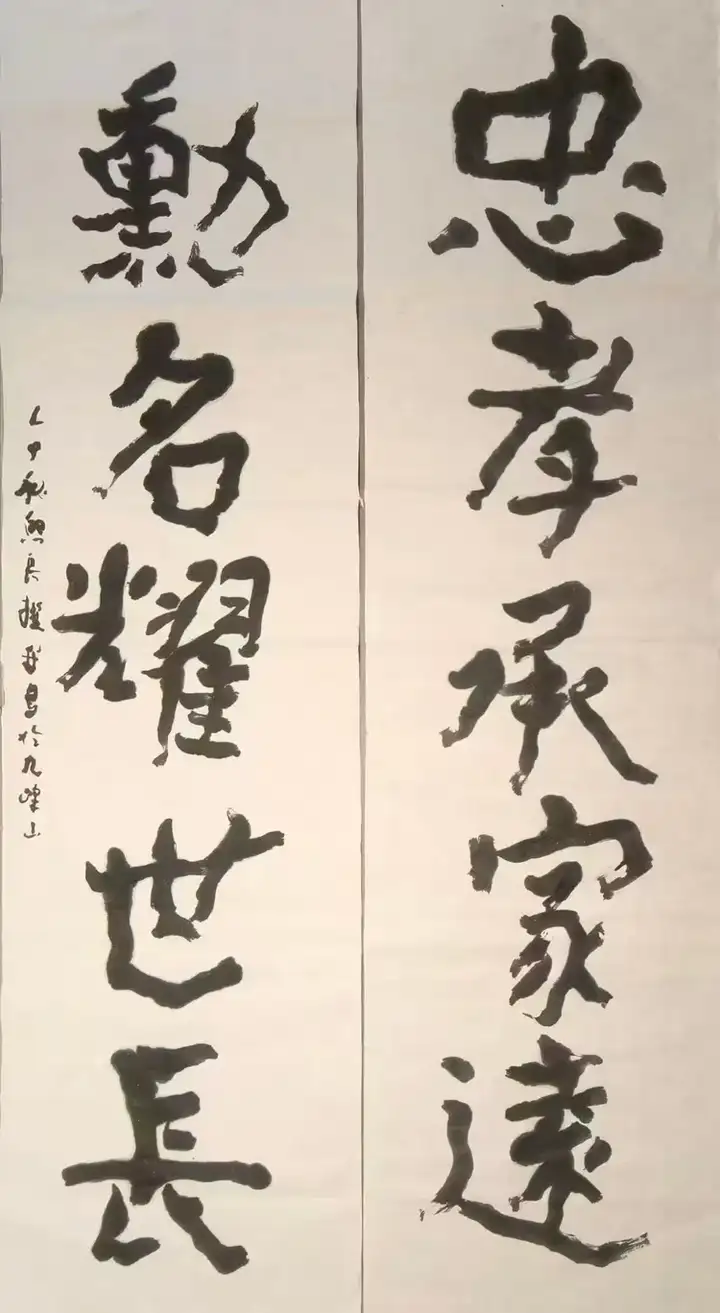 忠孝承家遠
勳名耀世長
秋熊良撰并書於九峰山